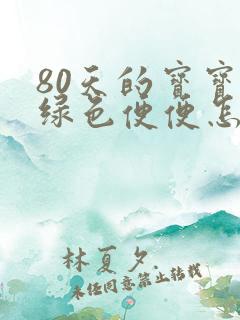 80天的宝宝
绿色便便怎
林夏夕.
未经同意禁止转载